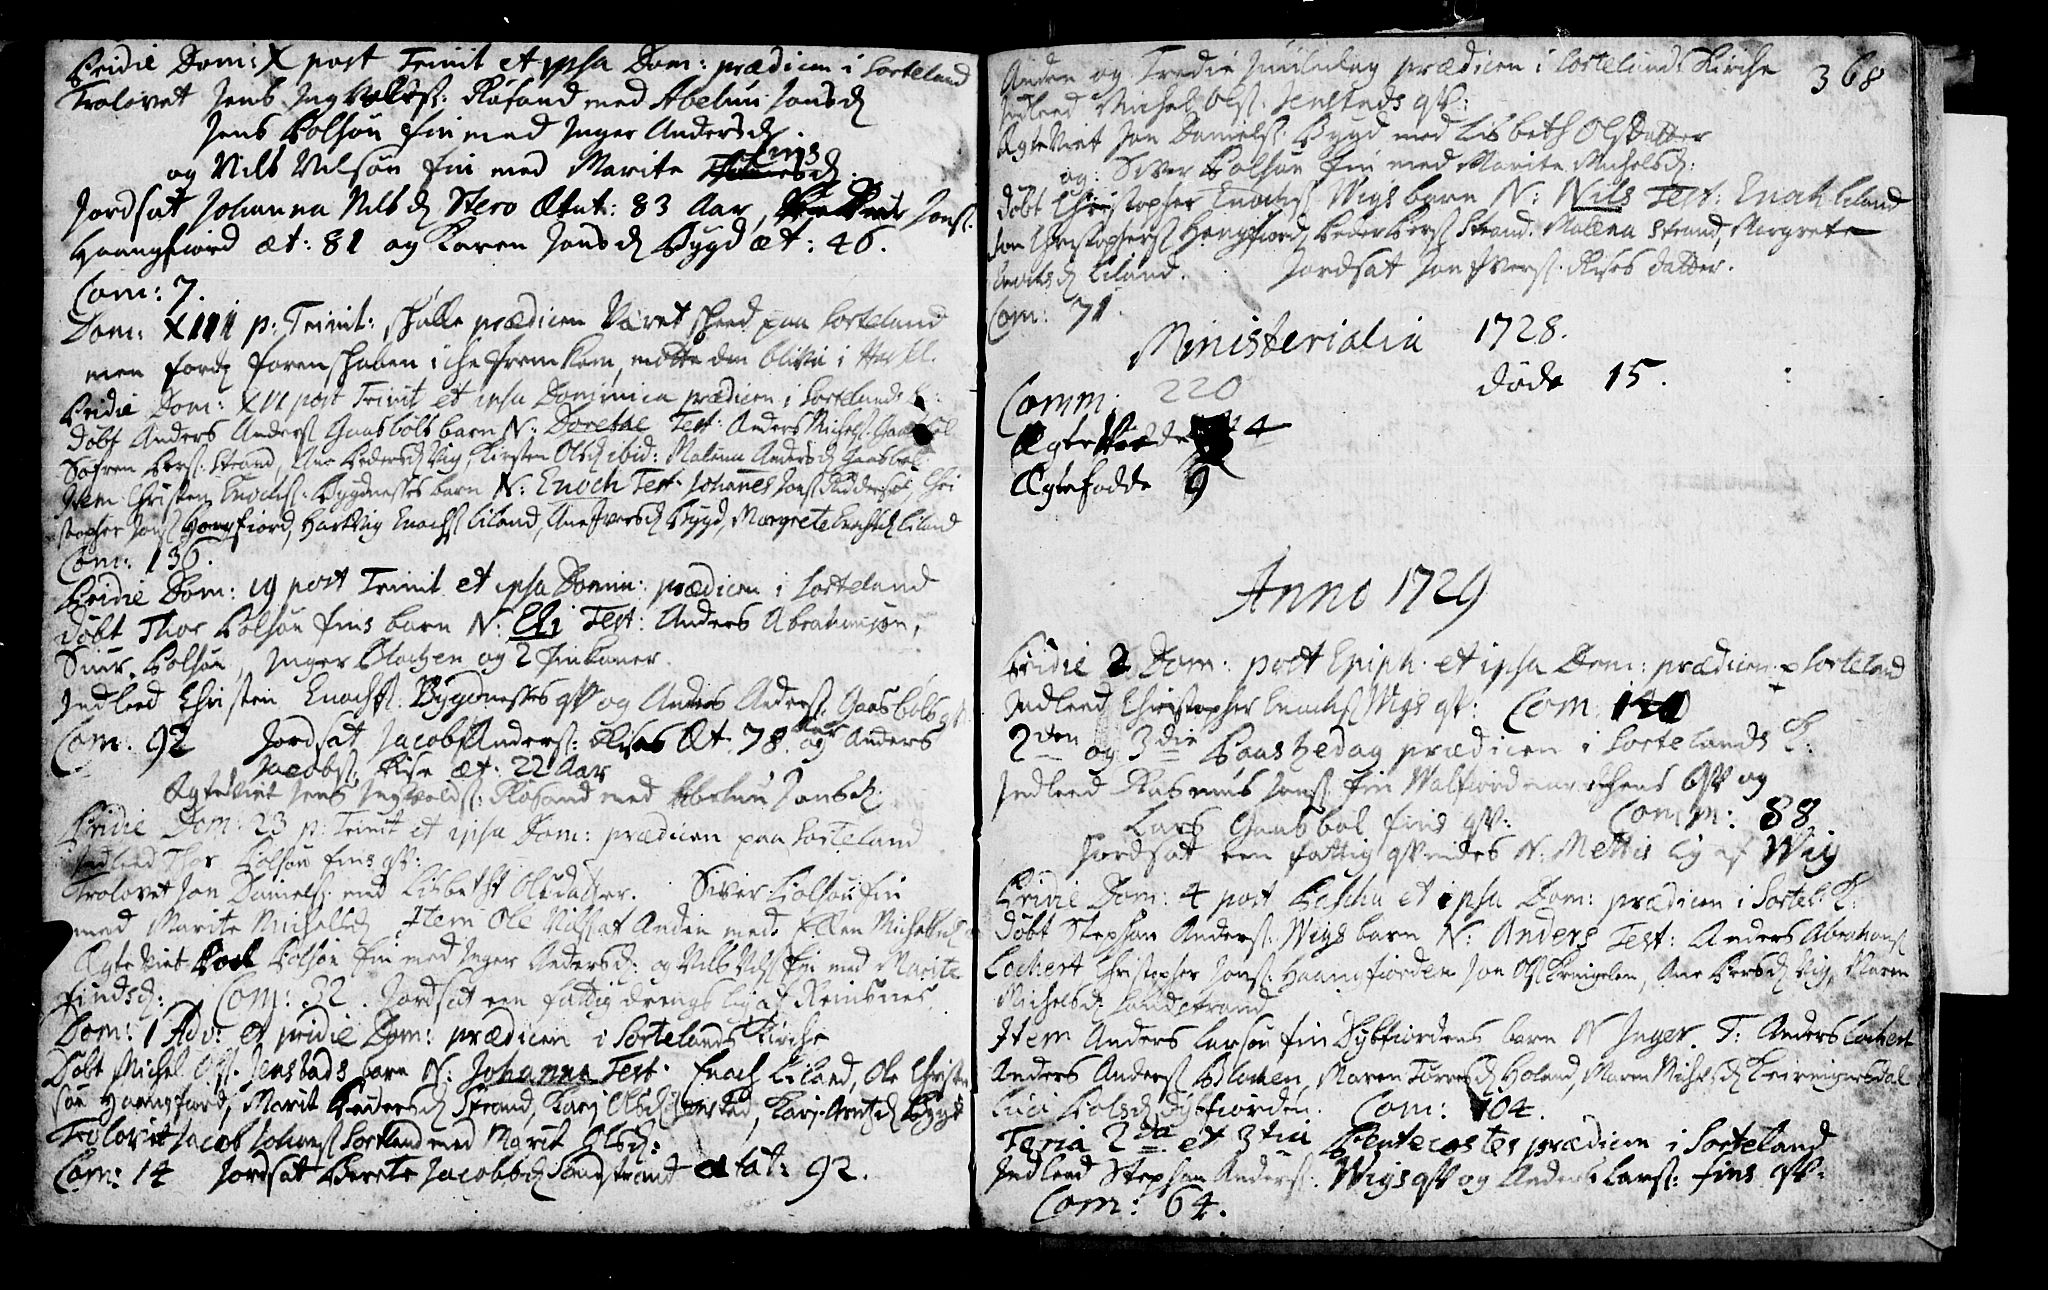 Pridie Dom: X post Trinit et ipsa Dom: prædicen i Sorteland
Trolovet Jens Ingvalds: Råsand med Abelun Jonsd
Jens Polsøn fin med Inger Andersd.
og Nils Nilsøn fin med Marite fins d:
Jordsat Johanna Nilsd Stero Ætat: 83 Aar, Jons:
Haangfiord æt: 81 og Karen Jonsd Bygd æt: 46.
Com: 7.
Dom: XIII p: Trinit: skulle prædicen været skeed paa Sorteland
men ford foren skaben icke fremkom, motte den blive i
Pridie Dom: XVI post Trinit et ipsa Dominica prædicen i Sortelands K:
Døbt Anders Anders Gaasbøls barn N: Dorethe Test: Anders Michels Gaasbøl
Søfren Pers: Strand, Ane Pedersd Vig, Kirsten Olsd ibid: Malena Andersd Gaasbøl
Item Christen Enochs: Bygdnesses barn N: Enoch Test: Johannes Jons, Chri
stopher Jons Hongfiord, Hartvig Enochs Liland, Ane Iversd Bygd, Margrete Enochsd Liland
Com: 136.
Pridie Dom: 19 post Trinit et ipsa Domin: prædicen i Sorteland
Døbt Thor Polsøn fins barn N: Eli Test: Anders Abrahamsøn,
Siur Polsøn, Inger Blochen og 2 finkoner.
Indleed Christen Enochs: Bygdnesses qv og Anders Anders: Gaasbøls qv:
Com: 92 Jordsat Jacob Anders: Rises Æt: 78 Aar og Anders
Jacobs: Rise æt: 22 Aar
Ægteviet Jens Ingvalds: Råsand med Abelun Jonsd:
Pridie Dom: 23 p: Trinit et ipsa Dom: prædicen paa Sorteland
Indleed Thor Polsøn fins qv:
Trolovet Jon Daniels: med Lisbeth Olsdatter. Siver Polsøn fin
med Marite Michelsd Item Ole Nils af Andøn med Ellen Michelsd
Ægteviet Poel Polsøn fin med Inger Andersd: og Nils Nils fin med Marite
finds d: Com: 22. Jordsat een fattig drengs lig af Reinsnes
Dom: 1 Adv: et pridie Dom: prædicen i Sortelands Kirche
Døbt Michel Ols. Jenstads barn N: Johanna Test: Enoch Liland, Ole Christen
søn Haangfiord, Marit Pedersd Strand, Karj Olsd Jensted, Karj Arntzd Bygd
Trolovet Jacob Johans Sortland med Marit Olsd:
Com: 14 Jordsat Berete Jacobsd Sandstrand ætat: 92.
368
Anden og Tredie Juuledag prædicen i Sortelands Kirche
Indleed Michel Ols: Jenstads qv:
Ægteviet Jon Daniels: Bygd med Lisbeth Olsdatter
og: Siver Polsøn fin med Marite Michelsd:
Døbt Christopher Enochs Wigs barn N: Nils Test: Enoch Liland
Jon Christophers Hongfiord, Peder Pers Strand. Malena Strand, Margrete
Enochsd Liland. Jordsat Jon Ivers: Rises datter.
Com: 71.
Ministerialia 1728.
Comm: 220 døde 15.
Ægteviede 4
Ægtefødde 9
Anno 1729
Pridie 2 Dom: post Epiph: et ipsa Dom: prædicen p Sorteland
Indleed Christopher Enochs Wigs qv: Com: 120
2den og 3die Paaskedag prædicen i Sortelands K:
Indleed Rasmus Jons fin Walfiord qv og
Lars Gaasbøl fins qv: Comm: 88
Jordsat een fattig qvindes N: Mettis lig af Wig
Pridie Dom: 4 post Pascha et ipsa Dom: prædicen i Sortel: K:
Døbt Stephan Anders: Wigs barn N: Anders Test: Anders Abrahams
Lochert Christopher Jons: Haangfiorden Jon Ols, Ane Persd Vig, Karen
Michelsd Sandstrand
Item Anders Larsøn fin Dybfiordens barn N Inger. T: Anders Lochert
Anders Anders Blochen, Maren Torresd Holand, Maren Michelsd
Luci Polsd Dybfiorden. Com: 104.
Feria 2da et 3tia Pentecostes prædicen i Sorteland
Indleed Stephan Anders: Wigs qv og Anders Lars: fins qv:
Com: 64.